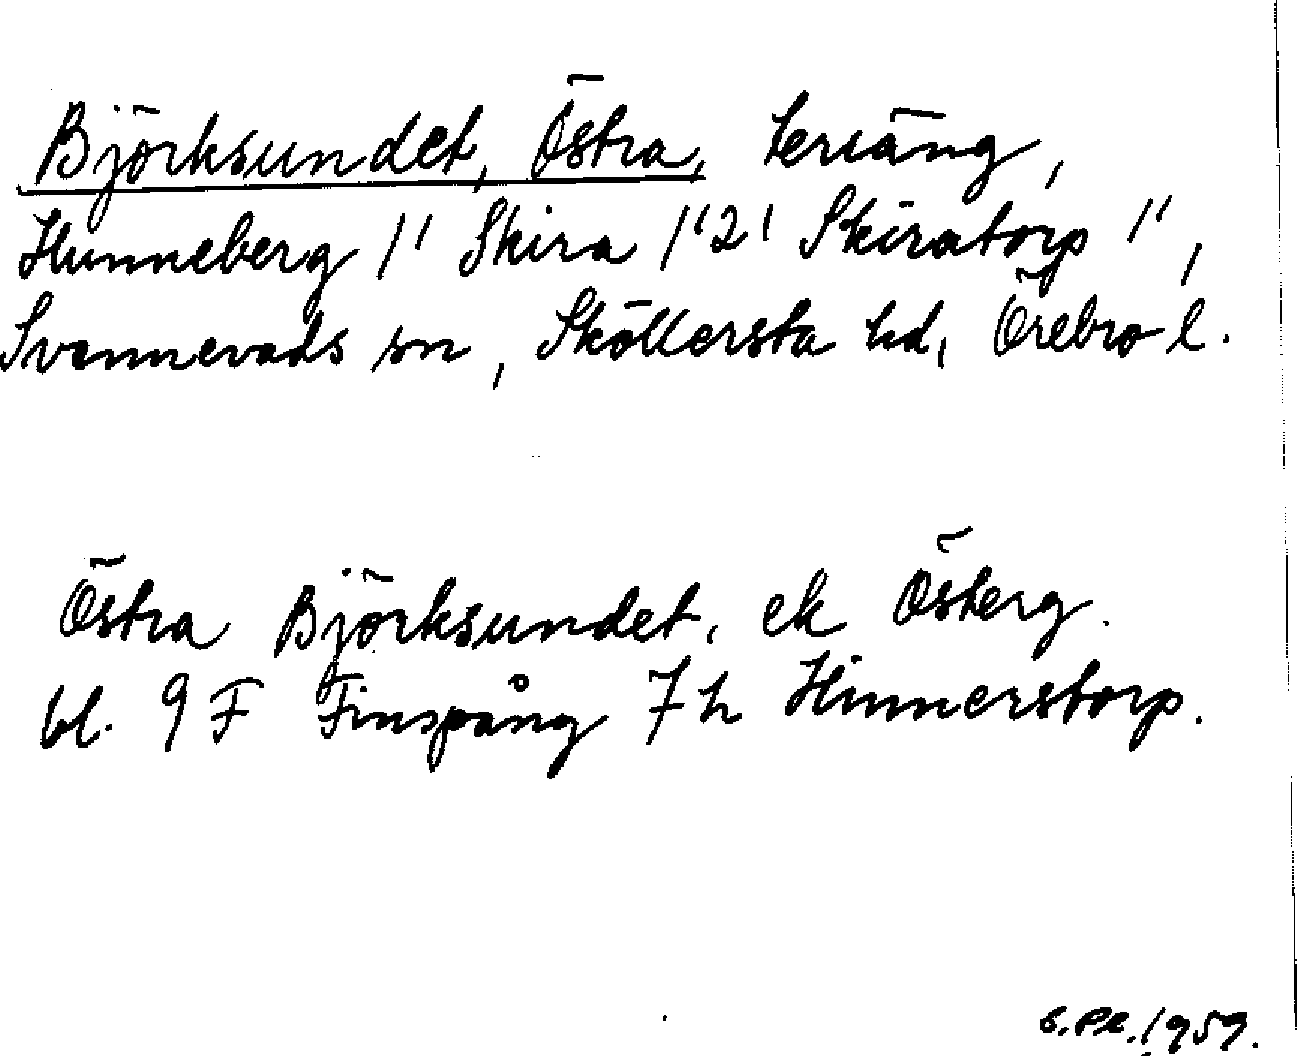 Björksundet, Östra, teräng,
Hunneberg 1" Skira 1"2' Skiratorp 1",
Svennevads sn, Sköllersta hd, Örebro l.
Östra Björksundet, ek Österg.
bl. 9 F Finspång 7 h Hinnerstorp.
1959.